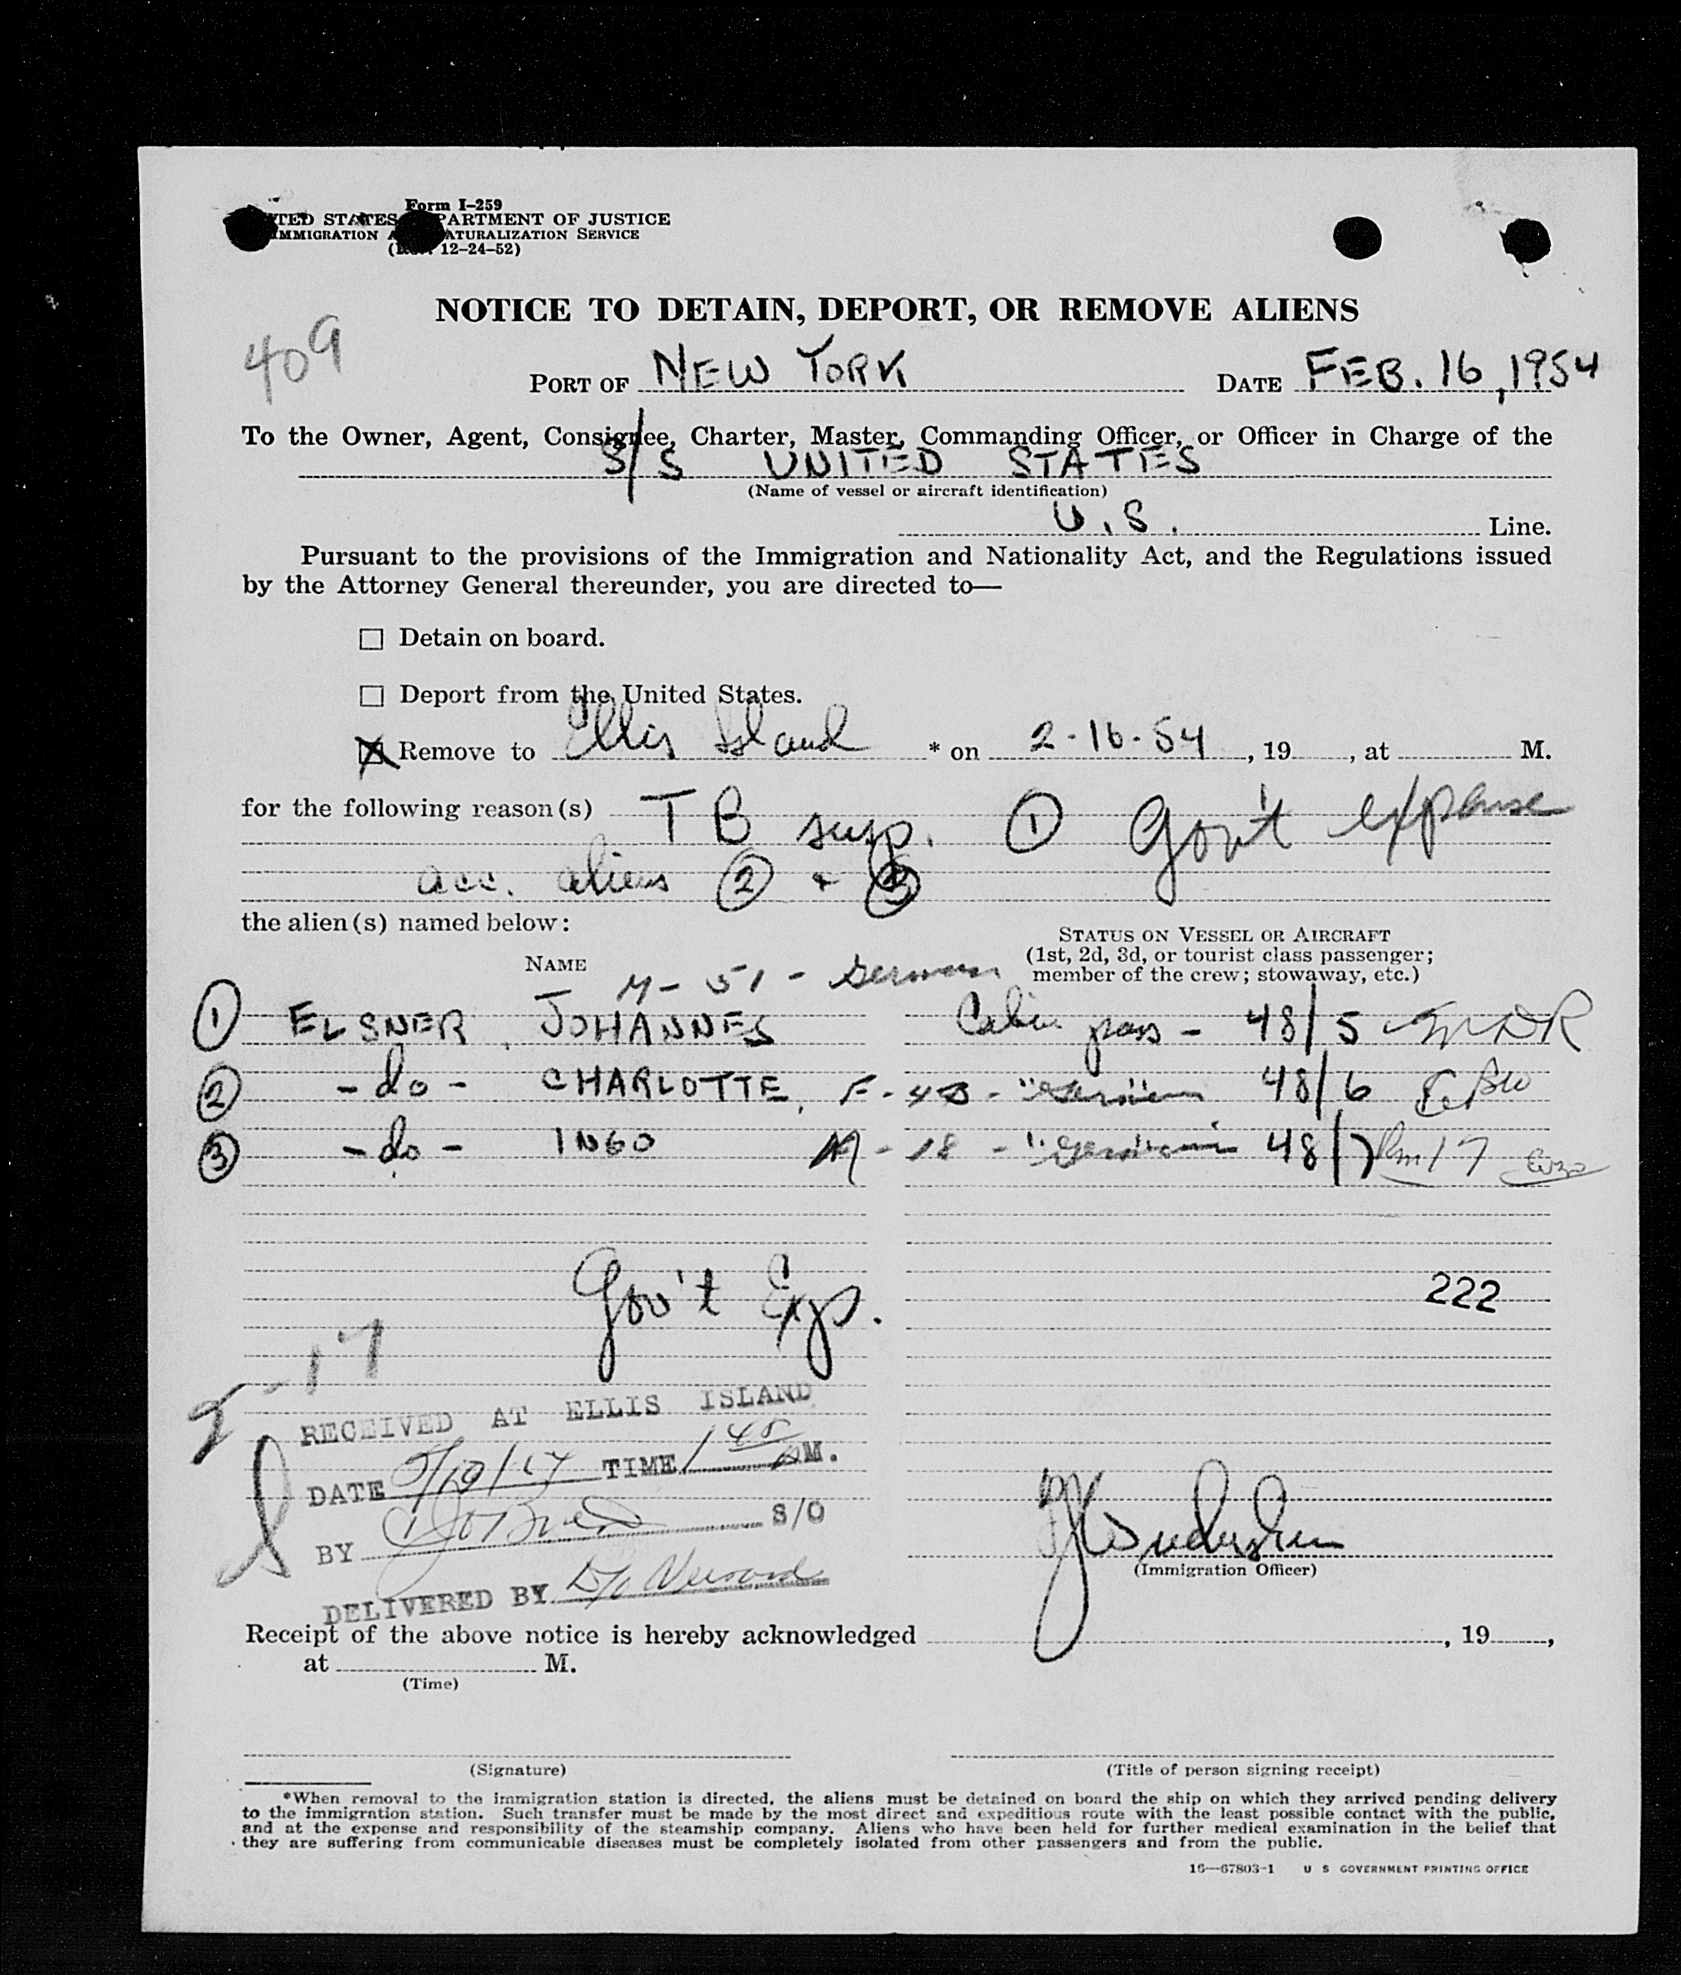 Form I-259
STATES DEPARTMENT OF JUSTICE
IMMIGRATION NATURALIZATION SERVICE
12-24-52)
NOTICE TO DETAIN, DEPORT, OR REMOVE ALIENS
409
PORT OF NEW YORK DATE FEB. 16, 1954
To the Owner, Agent, Consignee, Charter, Master, Commanding Officer, or Officer in Charge of the
S/S UNITED STATES
(Name of vessel or aircraft identification)
U.S. Line.
Pursuant to the provisions of the Immigration and Nationality Act, and the Regulations issued
by the Attorney General thereunder, you are directed to—
☐ Detain on board.
☐ Deport from the United States.
☒ Remove to Ellis Island * on 2-16-54, 19 , at M.
for the following reason(s) TB susp. ① Gov't expense
acc. aliens ② + ③
the alien(s) named below:
STATUS ON VESSEL OR AIRCRAFT
(1st, 2d, 3d, or tourist class passenger;
member of the crew; stowaway, etc.)
NAME
M - 51 - German
① ELSNER, JOHANNES Cabin pass - 48/5
② -do- CHARLOTTE, F - 48 - "German" 48/6
③ -do- INGO M - 18 - "German" 48/7 Rm 17
Gov't Exp.
222
2-17
RECEIVED AT ELLIS ISLAND
DATE TIME 1 45 M.
BY S/O
DELIVERED BY
(Immigration Officer)
Receipt of the above notice is hereby acknowledged , 19 ,
at M.
(Time)
(Signature) (Title of person signing receipt)
*When removal to the immigration station is directed, the aliens must be detained on board the ship on which they arrived pending delivery
to the immigration station. Such transfer must be made by the most direct and expeditious route with the least possible contact with the public,
and at the expense and responsibility of the steamship company. Aliens who have been held for further medical examination in the belief that
they are suffering from communicable diseases must be completely isolated from other passengers and from the public.
16—67803-1 U S GOVERNMENT PRINTING OFFICE